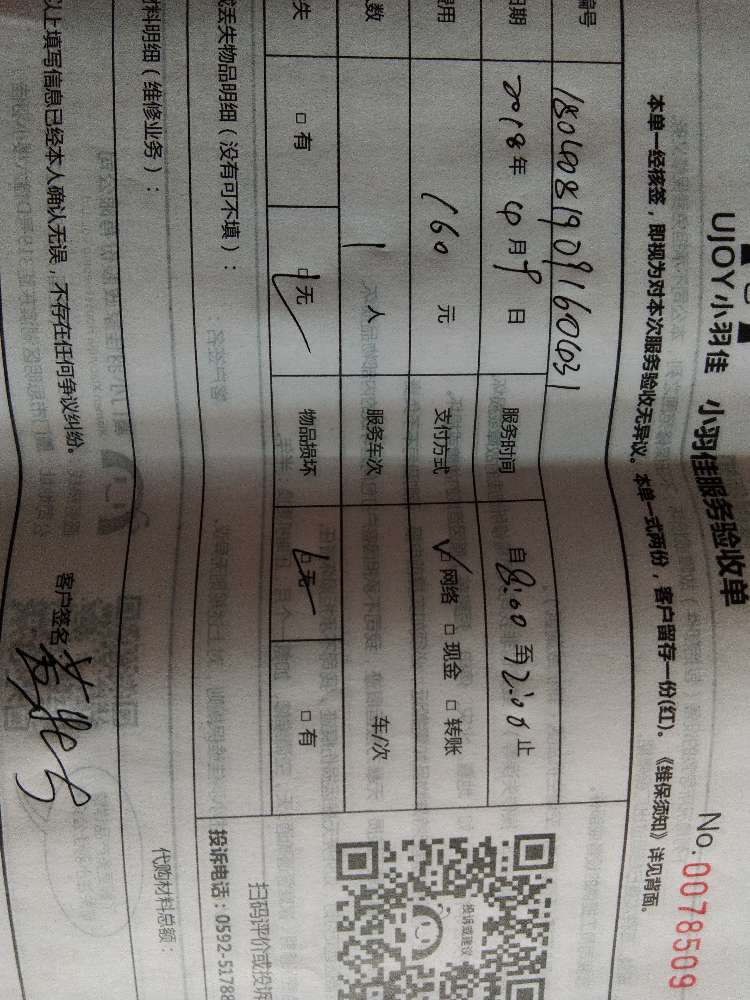 UJOY小羽佳 小羽佳服务验收单 No.0078509
本单一经核签，即视为对本次服务验收无异议。本单一式两份，客户留存一份(红)。《维保须知》详见背面。
编号
日期 2018年4月9日 服务时间 自8:00至12:00止
费用 160元 支付方式 ☑网络 □现金 □转账
数 1人 服务车次 车/次
失 □有 ☑无 物品损坏 ☑无 □有
或丢失物品明细（没有可不填）：
投诉或建议
扫码评价或投诉
投诉电话：0592-51788
材料明细（维修业务）： 代购材料总额：
以上填写信息已经本人确认无误，不存在任何争议纠纷。 客户签名